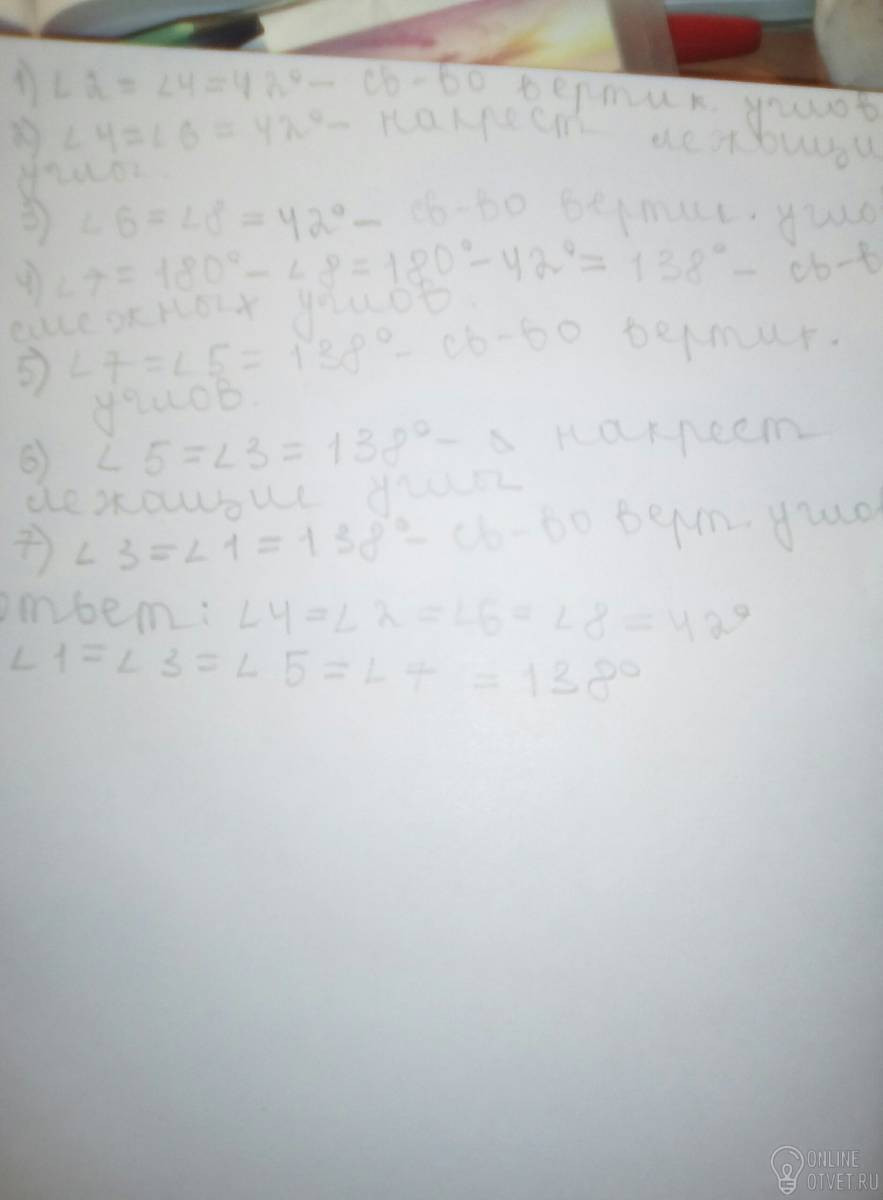 1) ∠2 = ∠4 = 42° – св-во вертик. углов
2) ∠4 = ∠6 = 42° – накрест лежащи
углы.
3) ∠6 = ∠8 = 42° – св-во вертик. угло
4) ∠7 = 180° – ∠8 = 180° – 42° = 138° – св-в
смежных углов.
5) ∠7 = ∠5 = 138° – св-во вертик.
углов.
6) ∠5 = ∠3 = 138° – накрест
лежащие углы
7) ∠3 = ∠1 = 138° – св-во верт. угло
ответ: ∠4 = ∠2 = ∠6 = ∠8 = 42°
∠1 = ∠3 = ∠5 = ∠7 = 138°
ONLINE
OTVET.RU